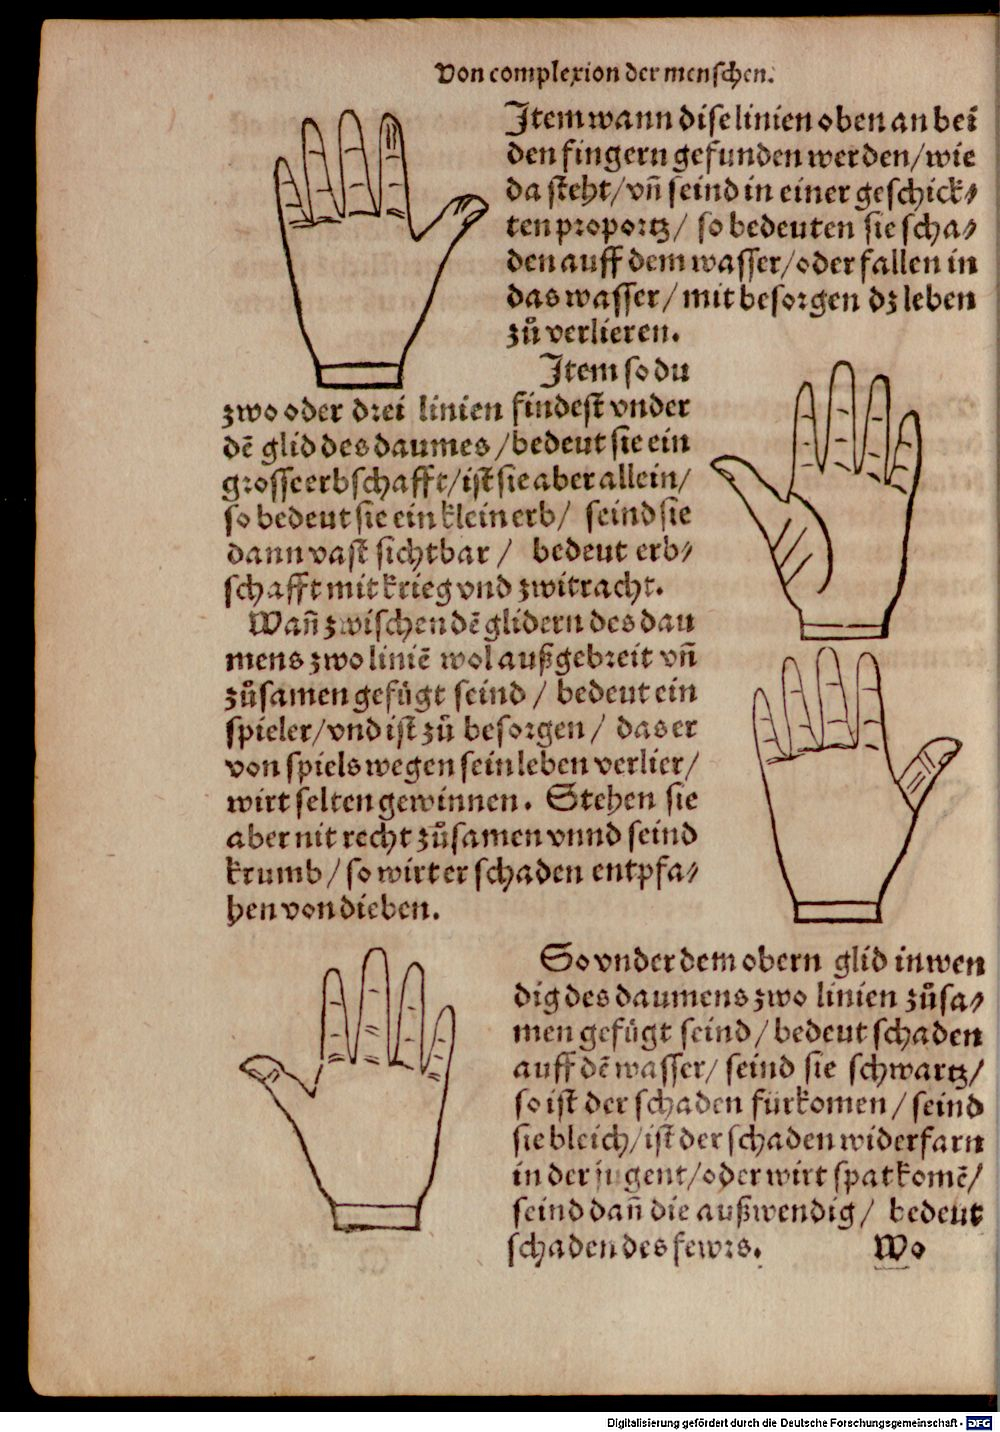 Von complexion der menschen.
Item wann dise linien oben an bei
den fingern gefunden werden/wie
da steht/vñ seind in einer geschick⸗
ten proportz/ so bedeuten sie scha⸗
den auff dem wasser/oder fallen in
das wasser/mit besorgen dz leben
zů verlieren.
Item so du
zwo oder drei linien findest vnder
dẽ glid des daumes/bedeut sie ein
grosse erbschafft/ist sie aber allein/
so bedeut sie ein klein erb/ seind sie
dann vast sichtbar/ bedeut erb⸗
schafft mit krieg vnd zwitracht.
Wañ zwischen dẽ glidern des dau
mens zwo liniẽ wol außgebreit vñ
zůsamen gefügt seind/ bedeut ein
spieler/vnd ist zů besorgen/ das er
von spiels wegen sein leben verlier/
wirt selten gewinnen. Stehen sie
aber nit recht zůsamen vnnd seind
krumb/so wirt er schaden entpfa⸗
hen von dieben.
So vnder dem obern glid inwen
dig des daumens zwo linien zůsa⸗
men gefügt seind/bedeut schaden
auff dẽ wasser/ seind sie schwartz/
so ist der schaden fürkomen/seind
sie bleich/ist der schaden widerfarn
in der jugent/oder wirt spat komẽ/
seind dañ die außwendig/ bedeut
schaden des fewrs. Wo
Digitalisierung gefördert durch die Deutsche Forschungsgemeinschaft - DFG